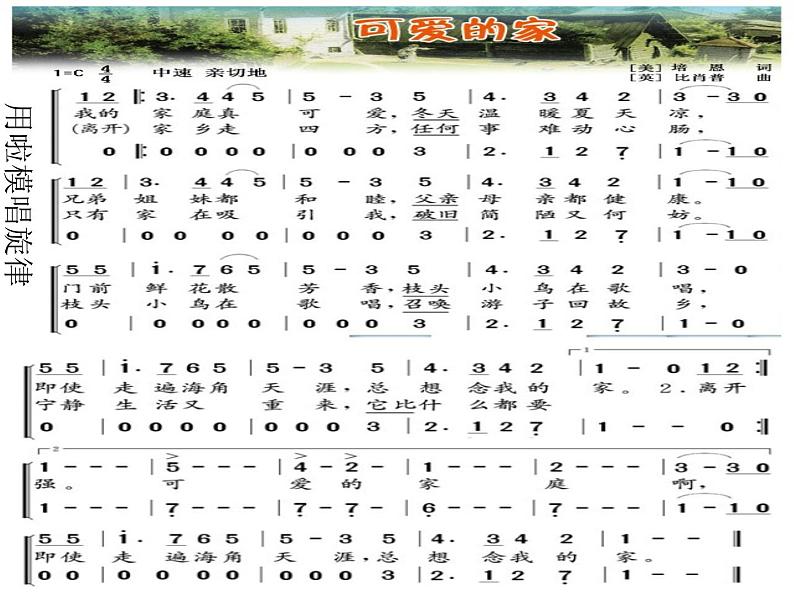 可爱的家
1=C 4/4 中速 亲切地
[美] 培恩 词
[英] 比肖普 曲
用啦模唱旋律
1 2 ‖: 3. 4 4 5 | 5 - 3 5 | 4. 3 4 2 | 3 - 3 0 |
我的 家 庭真 可 爱,冬天 温 暖夏天 凉,
(离开) 家 乡走 四 方,任何 事 难动心 肠,
0 ‖: 0 0 0 0 | 0 0 0 3 | 2. 1 2 7̣ | 1 - 1 0 |
1 2 | 3. 4 4 5 | 5 - 3 5 | 4. 3 4 2 | 1 - 1 0 |
兄弟 姐 妹都 和 睦,父亲 母 亲都健 康。
只有 家 在吸 引 我,破旧 简 陋又何 妨。
0 | 0 0 0 0 | 0 0 0 3 | 2. 1 2 7̣ | 1 - 1 0 |
5 5 | i. 7 6 5 | 5 - 3 5 | 4. 3 4 2 | 3 - 0
门前 鲜 花散 芳 香,枝头 小 鸟在歌 唱,
枝头 小 鸟在 歌 唱,召唤 游 子回故 乡,
0 | 0 0 0 0 | 0 0 0 3 | 2. 1 2 7̣ | 1 - 0
1
5 5 | i. 7 6 5 | 5 - 3 5 | 4. 3 4 2 | 1 - 0 1 2 :‖
即使 走 遍海角 天 涯,总 想 念我的 家。 2.离开
宁静 生 活又 重 来,它比什 么都要
0 | 0 0 0 0 | 0 0 0 3 | 2. 1 2 7̣ | 1 - 0 0 :‖
2
1 - - | 5 - - | 4 - 2 - | 1 - - | 2 - - | 3 - 3 0
强。 可 爱 的 家 庭 啊,
1 - - | 7̣ - - | 6̣ - 7̣ - | 1 - - | 7̣ - - | 1 - 1 0
5 5 | i. 7 6 5 | 5 - 3 5 | 4. 3 4 2 | 1 - - ‖
即使 走 遍海角 天 涯,总 想 念我 的 家。
0 | 0 0 0 0 | 0 0 0 3 | 2. 1 2 7̣ | 1 - - ‖